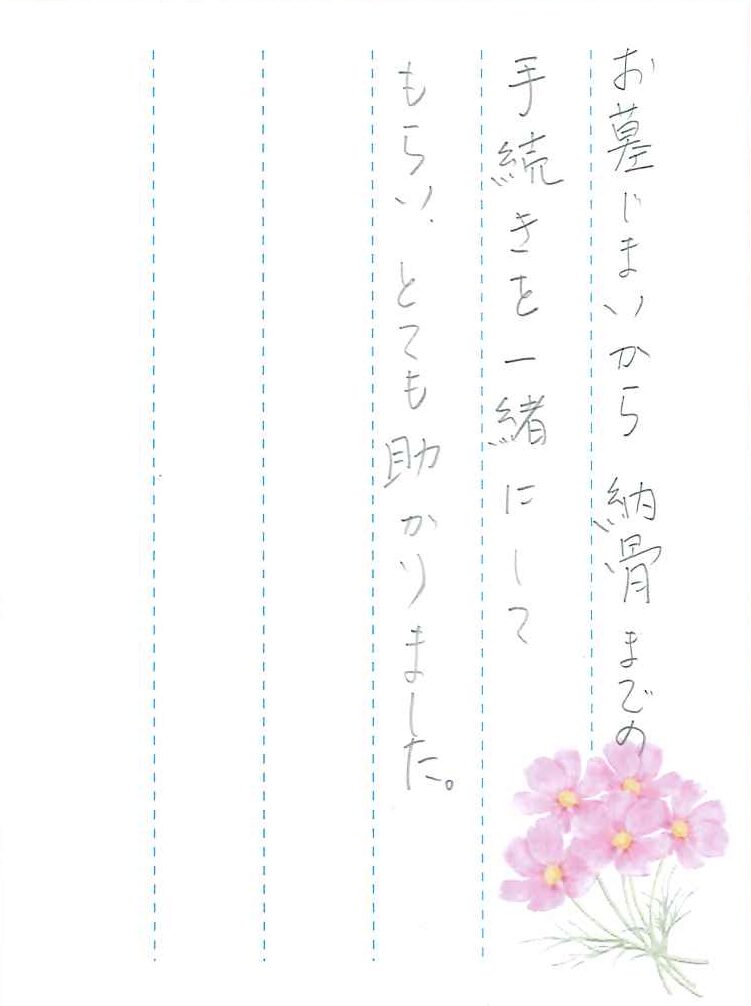 お墓じまいから納骨までの
手続きを一緒にして
もらい、とても助かりました。